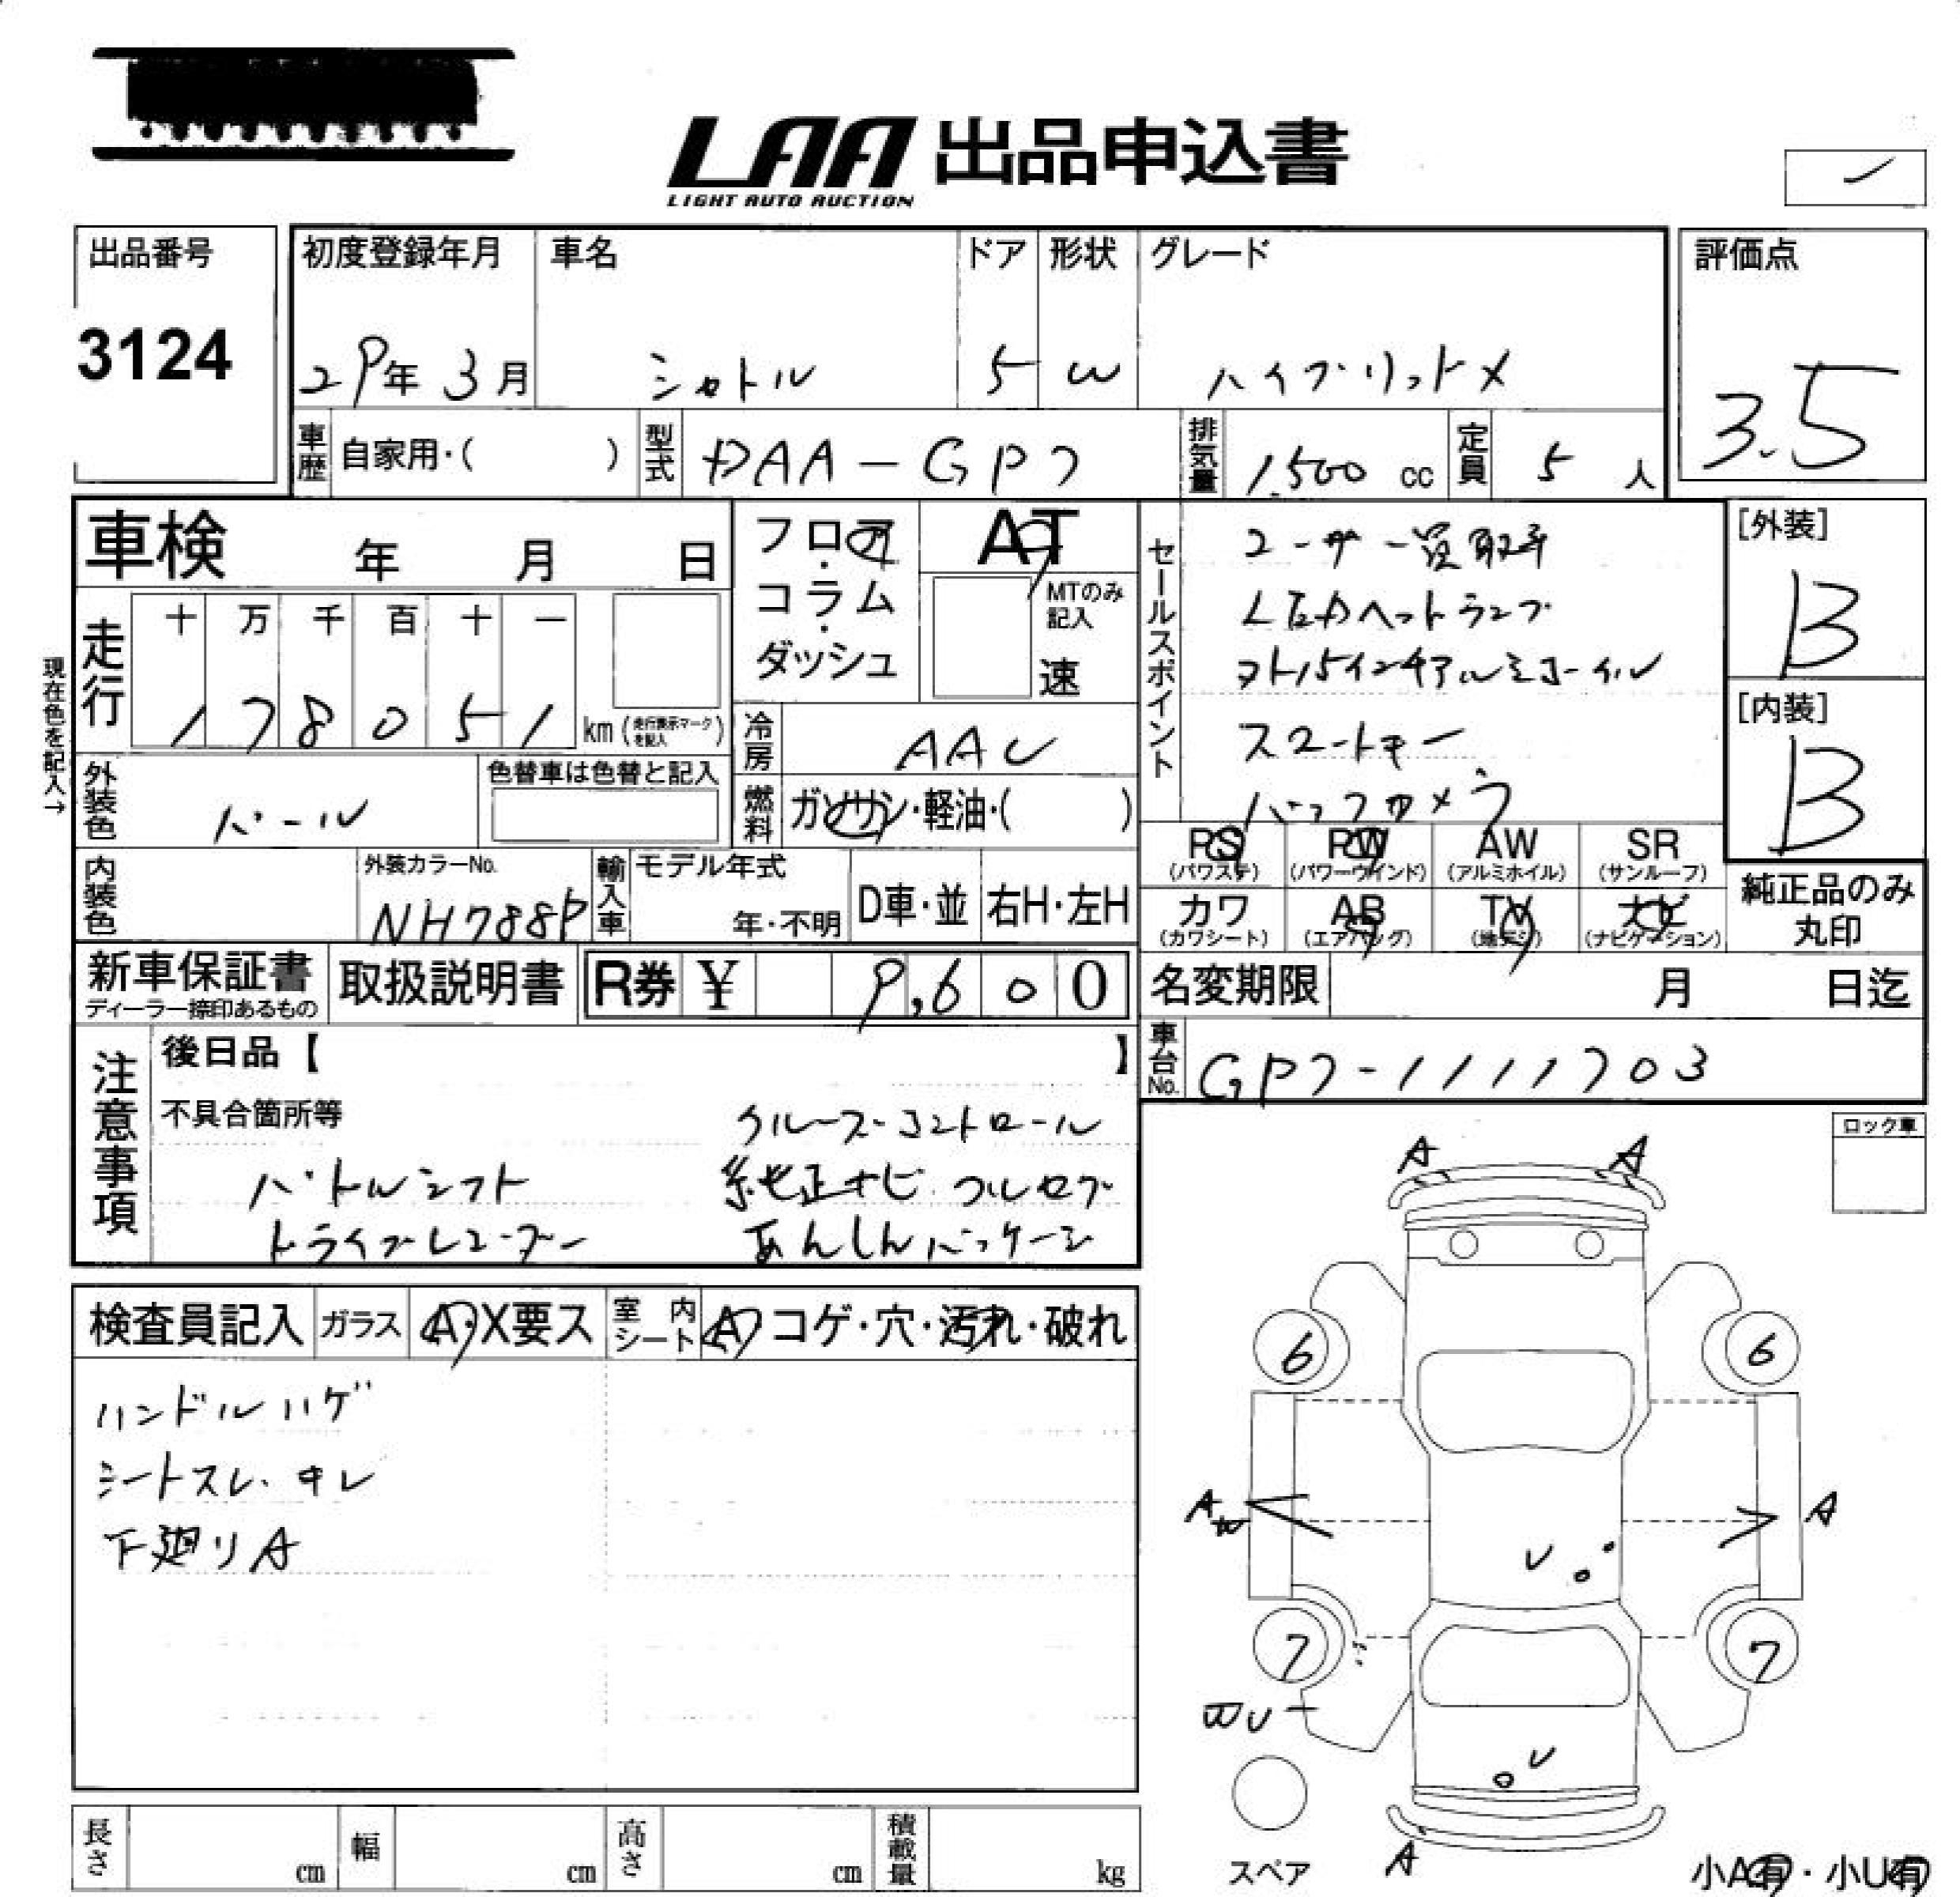 LAA 出品申込書
LIGHT AUTO AUCTION
出品番号
3124
初度登録年月 車名 ドア 形状 グレード
29年 3月 シャトル 5 W ハイブリッドX
評価点
3.5
車歴 自家用・( ) 型式 DAA-GP7 排気量 1,500 cc 定員 5 人
車検 年 月 日
フロア・コラム・ダッシュ
AT
MTのみ記入
速
走行 十 万 千 百 十 一
1 7 8 0 5 1 km (走行表示マークを記入)
現在色を記入→
冷房 AAC
外装色 パール
色替車は色替と記入
燃料 ガソリン・軽油・( )
内装色
外装カラーNo.
NH788P
輸入車 モデル年式
年・不明 D車・並 右H・左H
セールスポイント
ユーザー買取車
LEDヘッドランプ
スト15インチアルミホイル
スマートキー
バックカメラ
[外装]
B
[内装]
B
PS (パワステ) PW (パワーウインド) AW (アルミホイル) SR (サンルーフ)
カワ (カワシート) AB (エアバッグ) TV (地デジ) ナビ (ナビゲーション)
純正品のみ
丸印
新車保証書
ディーラー捺印あるもの
取扱説明書
R券 ¥ 9,600
名変期限 月 日迄
車台No. GP7-1111703
注意事項
後日品【 】
不具合箇所等
クルーズコントロール
パドルシフト 純正ナビ フルセグ
ドライブレコーダー あんしんパッケージ
ロック車
検査員記入 ガラス A・X要ス 室内シート A コゲ・穴・汚れ・破れ
ハンドルハゲ
シートスレ・キレ
下廻りA
A A
6 6
AW A
U
7 7
WU
U
スペア
A
小A有・小U有
長さ cm 幅 cm 高さ cm 積載量 kg